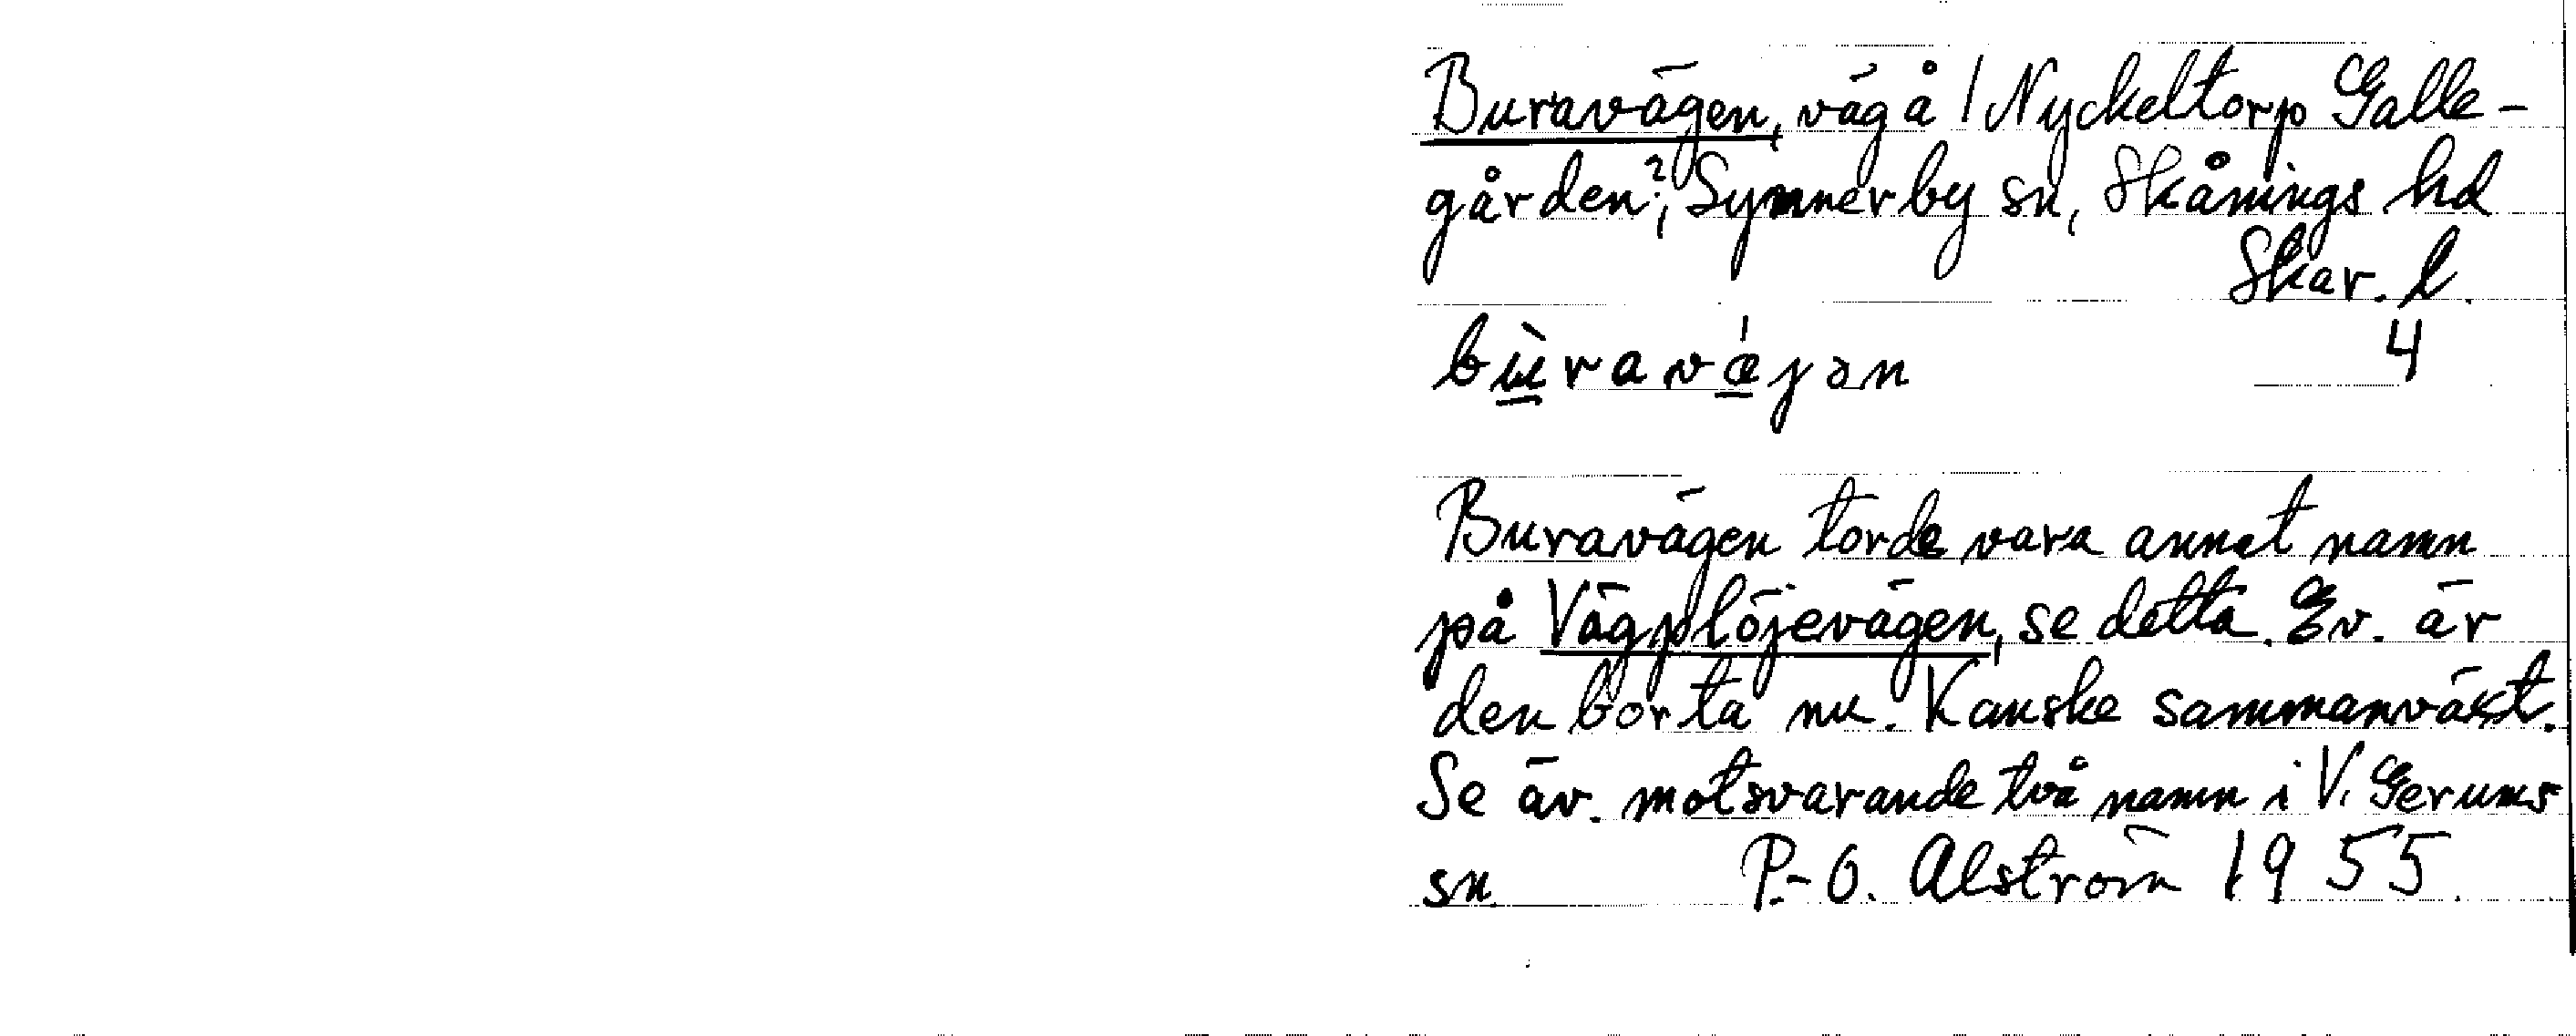 Buravägen, väg å 1 Nyckeltorp Galle-
gården?, Synnerby sn, Skånings hd
Skar. l.
4
bùravǽjən
Buravägen torde vara annat namn
på Vägplöjevägen, se detta. Ev. är
den borta nu. Kanske sammanväxt.
Se äv. motsvarande två namn i V. Gerums
sn. P.-O. Alström 1955.